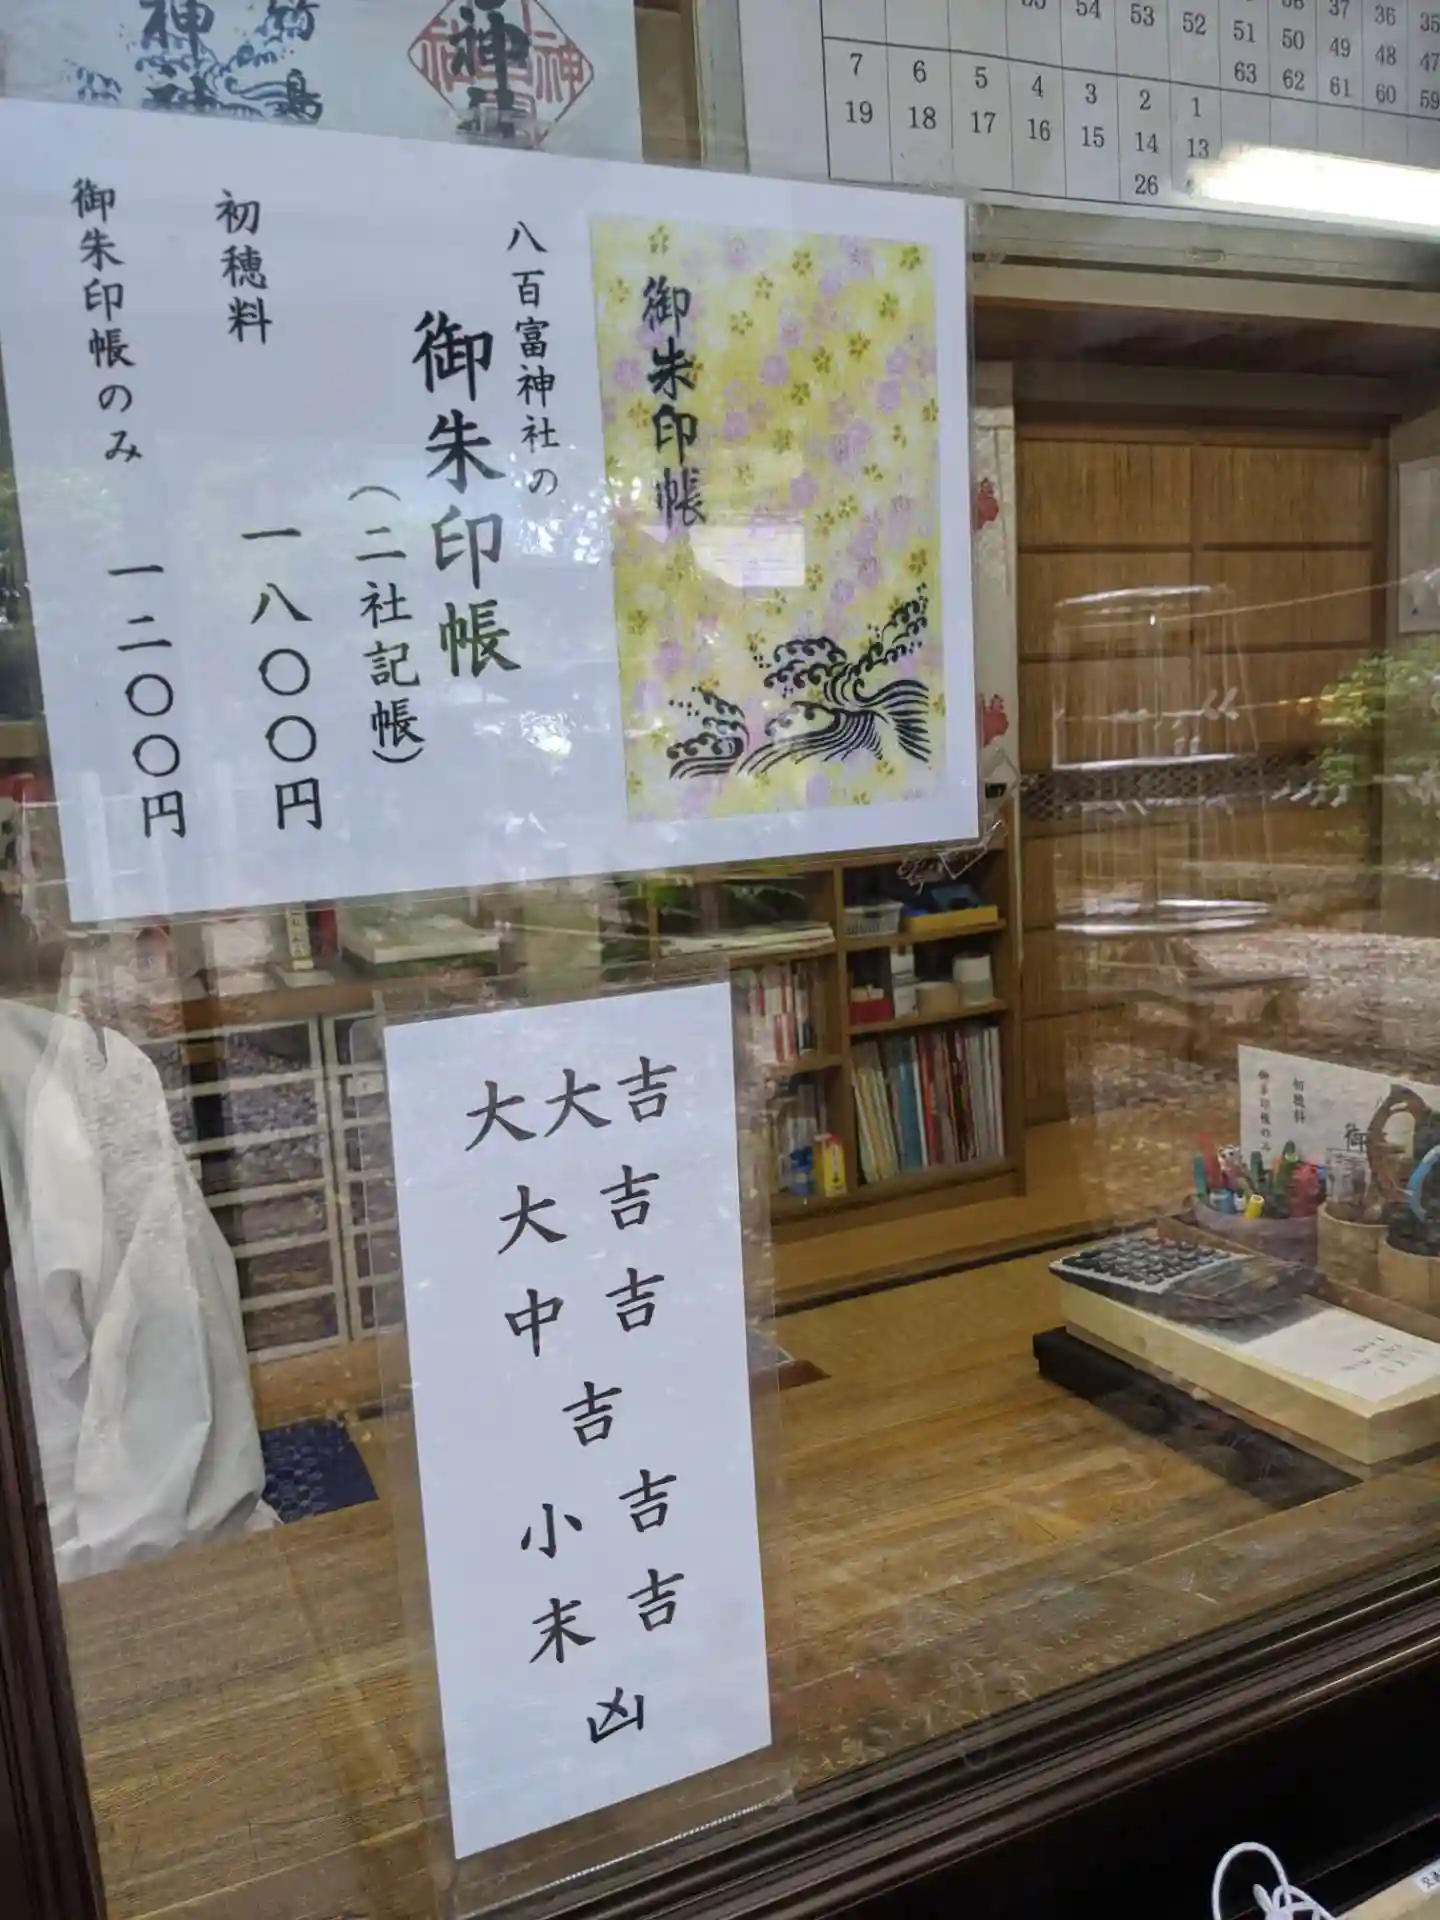 神
竹島
神
35
54
53
52
51
50
49
48
47
63
62
61
60
59
37
36
35
7
6
5
4
3
2
1
19
18
17
16
15
14
13
26
御朱印帳
八百富神社の
御朱印帳
(二社記帳)
初穂料 一八〇〇円
御朱印帳のみ 一二〇〇円
大大吉
大吉
中吉
吉
小吉
末吉
凶
初穂料